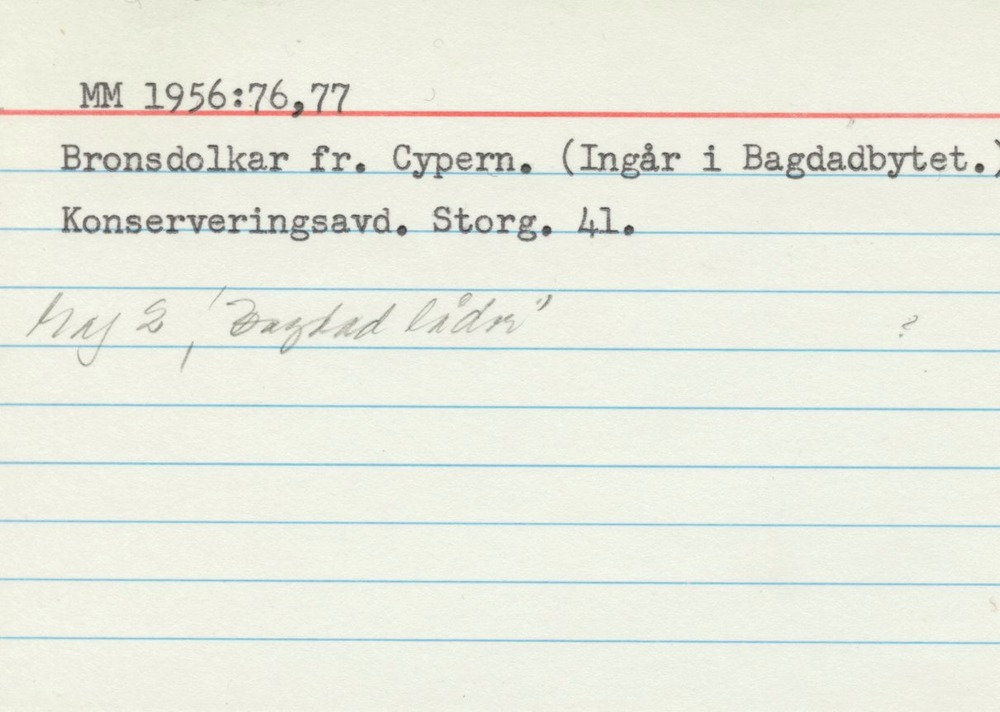 MM 1956:76,77
Bronsdolkar fr. Cypern. (Ingår i Bagdadbytet.)
Konserveringsavd. Storg. 41.
Mag 2, "Bagdad lådor" ?